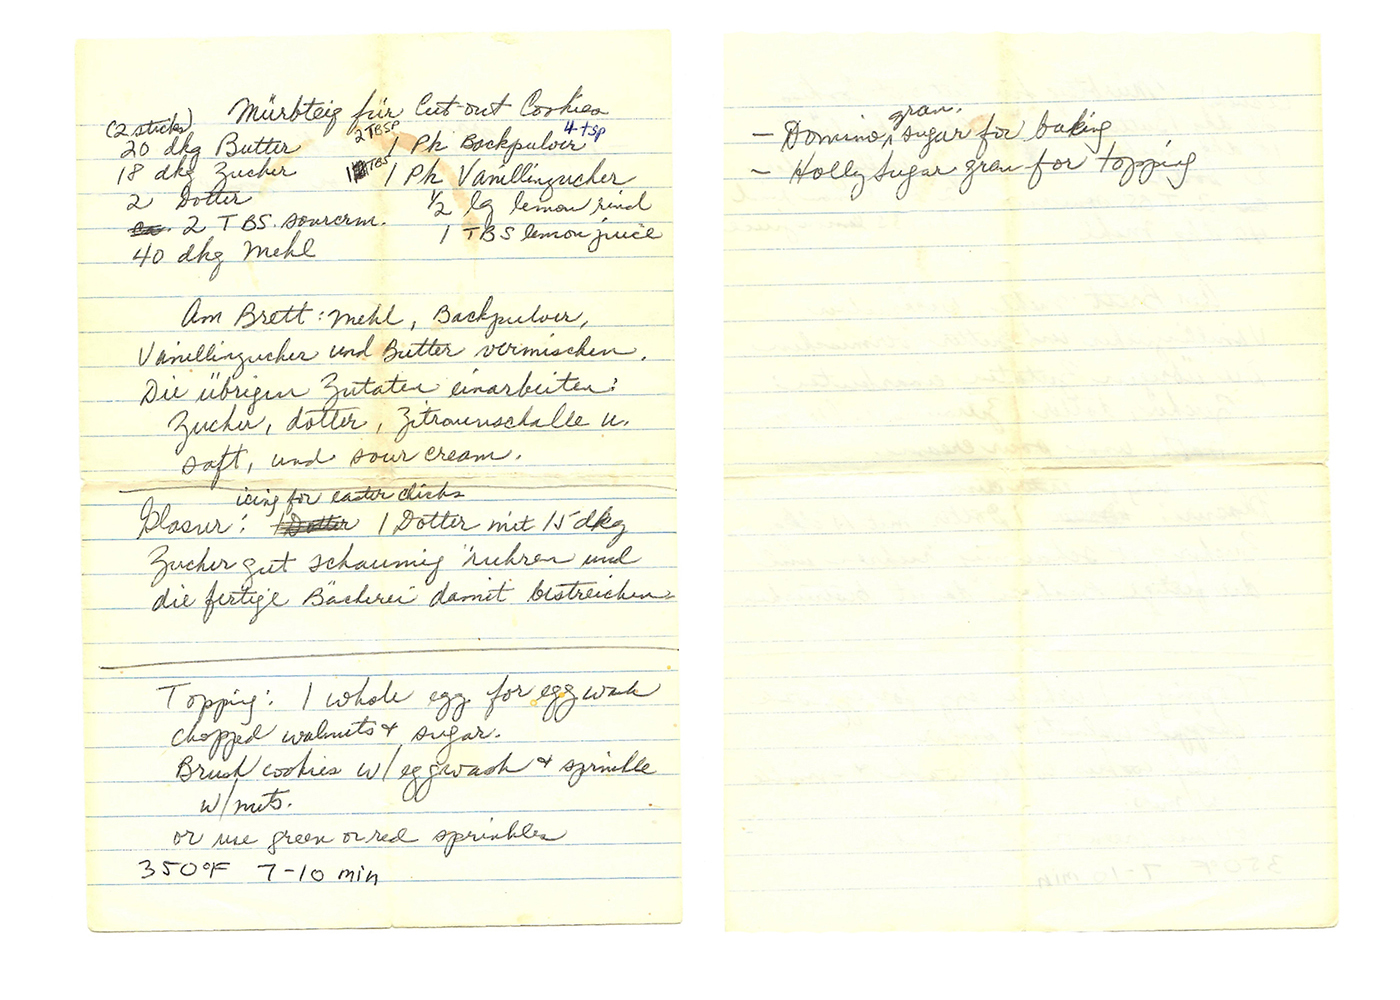 Mürbteig für Cut-out Cookies
(2 sticks)
20 dkg Butter
18 dkg Zucher
2 Dotter
2 TBS. sourcrm.
40 dkg Mehl
2 TBSP 4 tsp
1 Pk Backpulver
1 TBS 1 Pk Vanillinzucher
1/2 lg lemon rind
1 TBS lemon juice
Am Brett: Mehl, Backpulver,
Vanillinzucher und Butter vermischen.
Die übrigen Zutaten einarbeiten:
Zucher, dotter, Zitraunschalle u.
saft, und sour cream.
icing for easter chicks
Glasur: 1 Dotter 1 Dotter mit 15 dkg
Zucher gut schaumig rühren und
die fertige Bächerei damit bestreichen.
Topping: 1 whole egg for eggwash
chopped walnuts & sugar.
Brush cookies w/eggwash & sprinkle
w/nuts.
or use green or red sprinkles
350°F 7-10 min
gran.
- Domino ^ sugar for baking
- Holly Sugar gran for topping